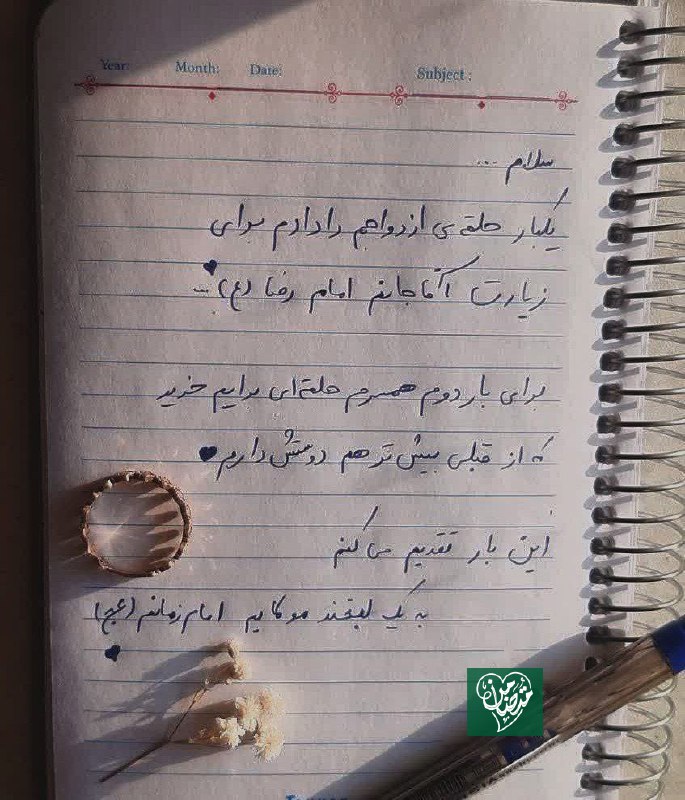 Year: Month: Date: Subject :
سلام ...
یکبار حلقه‌ی ازدواجم را دادم برای
زیارت آقاجانم امام رضا (ع) ...
برای بار دوم همسرم حلقه‌ای برایم خرید
که از قبلی بیش‌تر هم دوستش دارم
این بار تقدیم می‌کنم
به یک لبخند مولایم امام زمانم (عج)